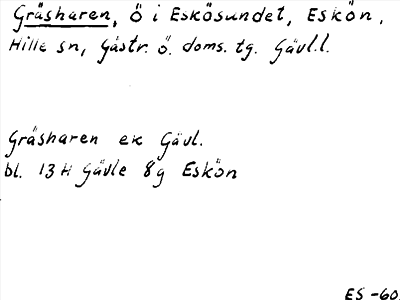 Gräsharen, Ö i Eskösundet, Eskön,
Hille sn, Gästr. ö. doms. tg. Gävl.l.
Gräsharen ek Gävl.
bl. 13 H Gävle 8g Eskön
ES -60